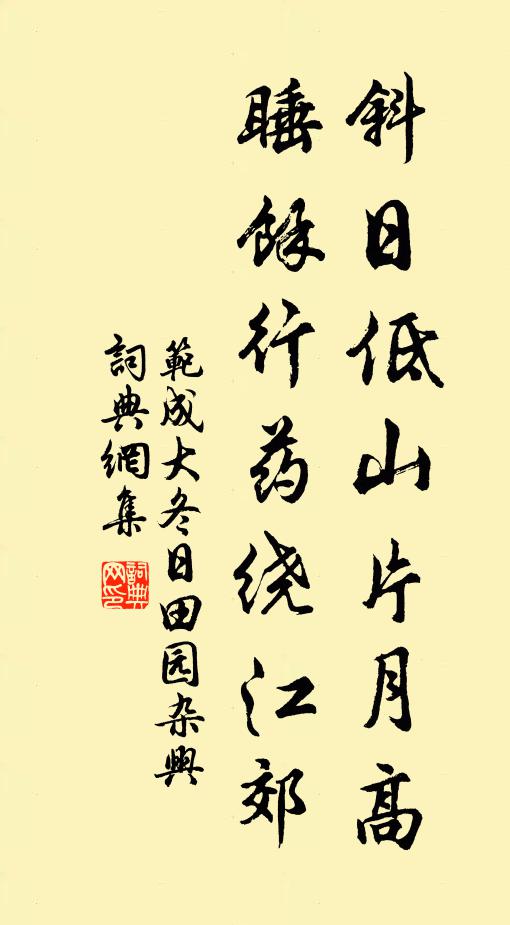 斜日低山片月高
睡餘行药绕江郊
範成大冬日田园杂興
詞典網集
詞典网印